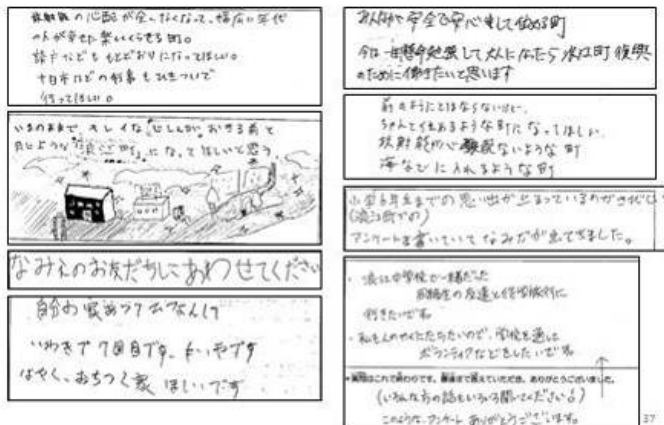 放射能の心配が全くなくなって、幅広い年代
の人が幸せに楽しくくらせる町。
請戸などももとどおりになってほしい。
十日市などの行事もひきついで
行ってほしい。
いまのままで、キレイな"じしんがおきる前と
同じような"浪江町"になってほしいと思う
なみえのお友だちにあわせてください
自分の家あってないんして
いわきで7回目です。
はやく、おちつく家 ほしいです
みんなが安全で安心をして住める町
今は一生懸命勉強して大人になったら浪江町復興
のために働きたいと思います
前のようにとはならないけど、
ちゃんと住めるような町になってほしい。
放射能がないような町
海などに入れるような町
小学6年生までの思い出が止まっているのが
(浪江町での)
アンケートを書いていてなみだが出てきました。
・浪江中学校で一緒だった
同級生の友達と修学旅行に
行きたいです
・私も人のやくにたちたいので、学校を通した
ボランティアなどをしたいです
質問はこれで終わりです。最後まで答えていただき、ありがとうございました。
(いろんな方の話もいろいろ聞いてください)
このような、アンケートありがとうございます。
37